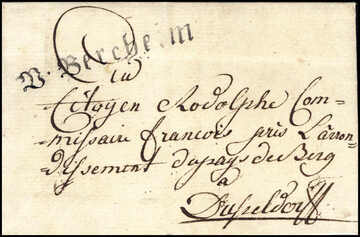 V. Bercheim
Au
Citoyen Rodolphe Com-
missaire francois près L'arron-
dissement du pays de Berg
à
Dusseldorff